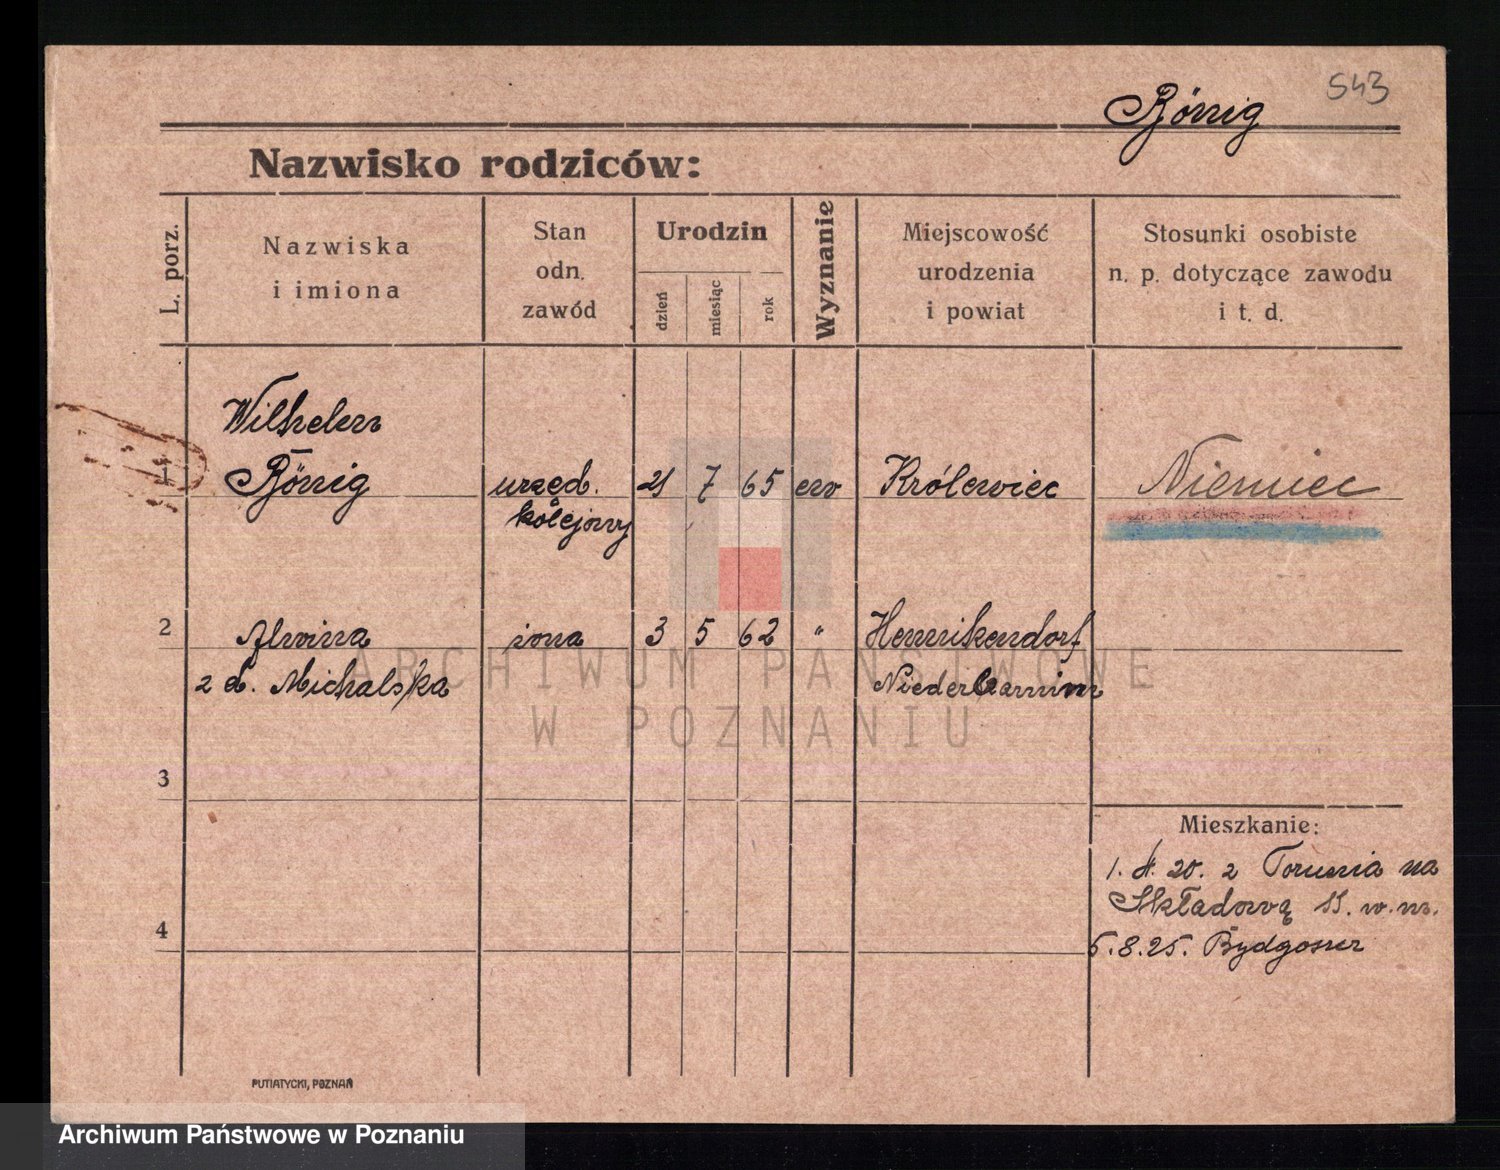 543
Rönig
Nazwisko rodziców:
L. porz.
Nazwiska
i imiona
Stan
odn.
zawód
Urodzin
dzień
miesiąc
rok
Wyznanie
Miejscowość
urodzenia
i powiat
Stosunki osobiste
n. p. dotyczące zawodu
i t. d.
Wilhelm
1 Rönig urzęd. 21 7 65 ew Królewiec Niemiec
kolejowy
2 Alwina żona 3 5 62 " Hennikendorf
z d. Michalska Niederbarnim
3
Mieszkanie:
1. 4. 20. z Torunia na
Składową 11. w. m.
4
5.8.25. Bydgoszcz
PUTIATYCKI, POZNAŃ
ARCHIWUM PAŃSTWOWE
W POZNANIU
Archiwum Państwowe w Poznaniu